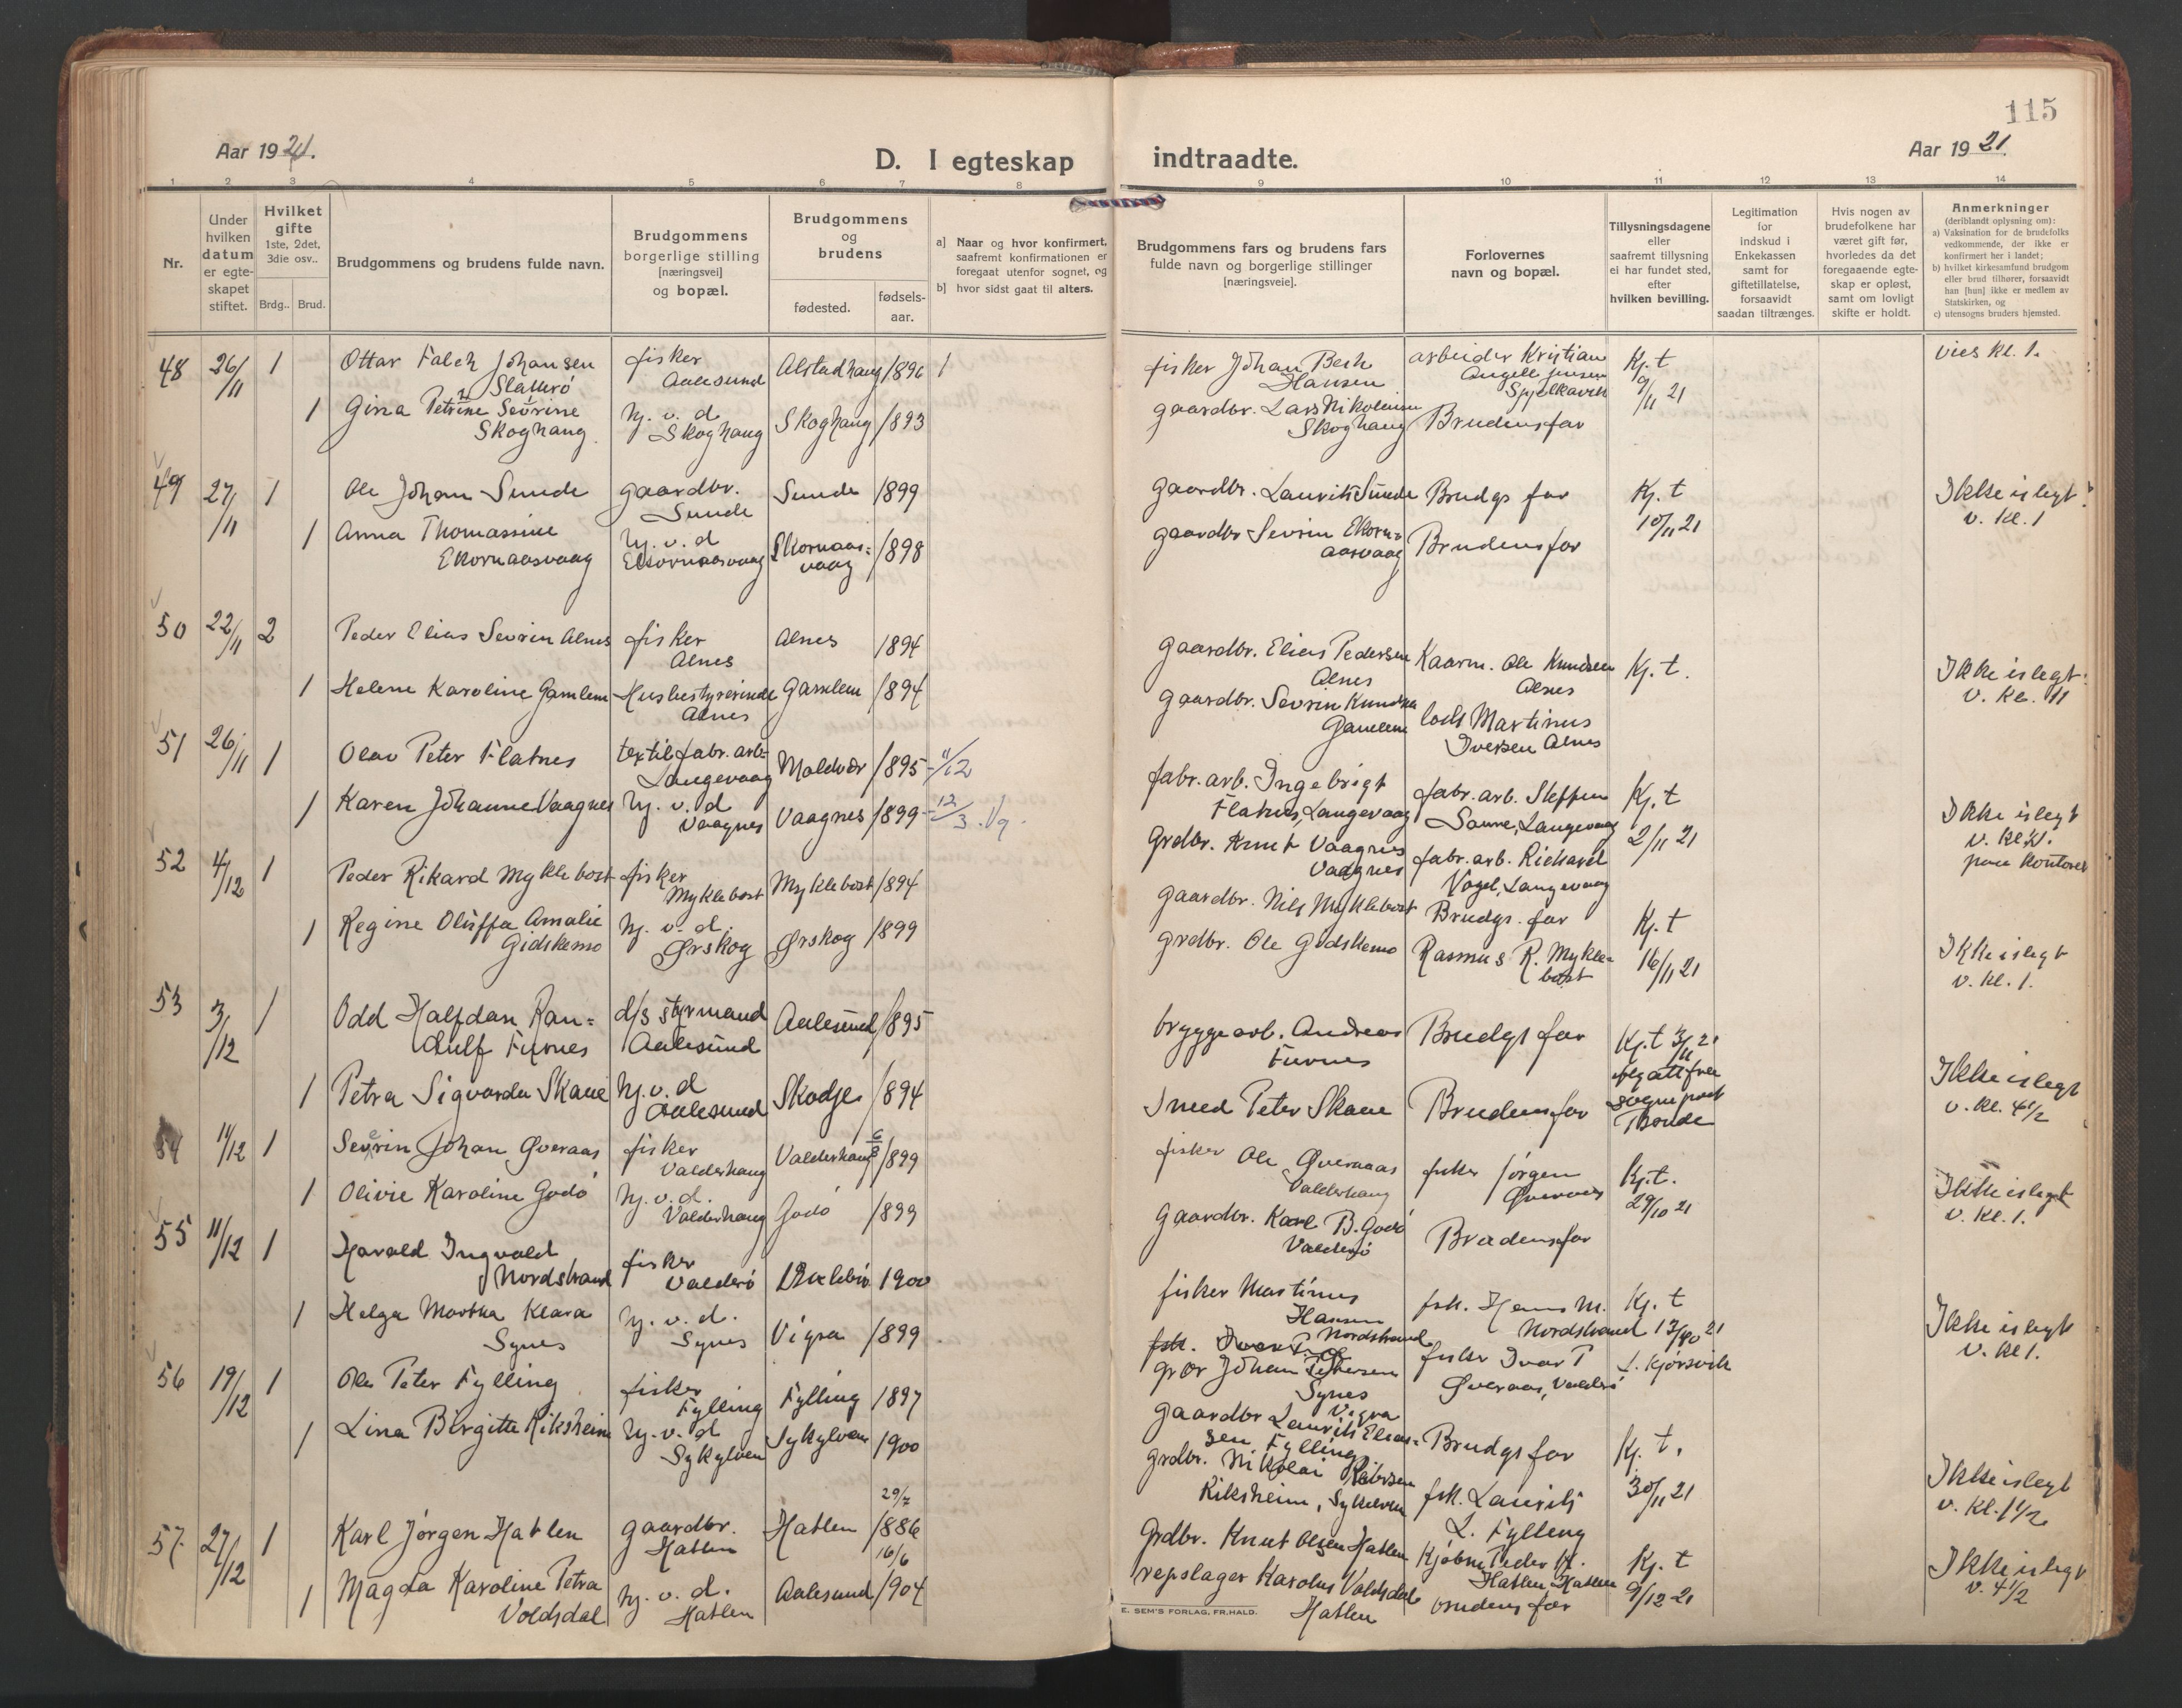 115
Aar 1921.
D. I egteskap indtraadte.
Aar 1921.
1 2 3 4 5 6 7 8 9 10 11 12 13 14
Nr.
Under hvilken datum er egte-skapet stiftet.
Hvilket gifte 1ste, 2det, 3die osv..
Brdg.. Brud.
Brudgommens og brudens fulde navn.
Brudgommens borgerlige stilling [næringsvei] og bopæl.
Brudgommens og brudens
fødested.
fødsels-aar.
a] Naar og hvor konfirmert, saafremt konfirmationen er foregaat utenfor sognet, og
b] hvor sidst gaat til alters.
Brudgommens fars og brudens fars fulde navn og borgerlige stillinger [næringsveie].
Forlovernes navn og bopæl.
Tillysningsdagene eller saafremt tillysning ei har fundet sted, efter hvilken bevilling.
Legitimation for indskud i Enkekassen samt for giftetillatelse, forsaavidt saadan tiltrænges.
Hvis nogen av brudefolkene har været gift før, hvorledes da det foregaaende egte-skap er opløst, samt om lovligt skifte er holdt.
Anmerkninger
(deriblandt oplysning om):
a) Vaksination for de brudefolks vedkommende, der ikke er konfirmert her i landet;
b) hvilket kirkesamfund brudgom eller brud tilhører, forsaavidt han [hun] ikke er medlem av Statskirken, og
c) utensogns bruders hjemsted.
48 26/11 1 Ottar Falch Johansen fisker Aalesund Alstadhaug 1896
fisker Johan Bech Hansen arbeider Kristian Angell Jensen Spjelkavik Kj. t 9/11 21 vies kl. 1.
1 Gina Petrine Sevrine Skoghaug hj. v. d Skoghaug Skoghaug 1893
gaardbr. Lars Nikolaisen Skoghaug Brudens far
49 27/11 1 Ole Johan Sunde gaardbr. Sunde Sunde 1899
gaardbr. Laurits Sunde Brudgs far Kj. t 10/11 21 Ikke islegt v. Kl. 1
1 Anna Thomassine Ekornaasvaag hj. v. d Ekornaasvaag Ekornaas=vaag 1898
gaardbr Sevrin Ekorn=aasvaag Brudens far
50 22/11 2 Peder Elias Sevrin Alnes fisker Alnes Alnes 1894
gaardbr. Elias Pedersen Alnes Kaarm. Ole Knudsen Alnes Kj. t. Ikke islegt. v. Kl. 11
1 Helene Karoline Gamlem Husbestyrerinde Alnes Gamlem 1894
gaardbr. Sevrin Knudsen Gamlem lods Martinus Iversen Alnes
51 26/11 1 Olav Peter Flatnes textilfabr. arb. Langevaag Moldvær 1895 11/12
fabr. arb. Ingebrigt Flatnes, Langevaag fabr. arb. Steffen Saure, Langevaag Kj. t 2/11 21 Ikke islegt v. Kl. paa kontoret
1 Karen Johanne Vaagnes hj. v. d Vaagnes Vaagnes 1899 12/3
Grdbr. Knut Vaagnes Vaagnes fabr. arb. Richard Vogel, Langevaag
52 4/12 1 Peder Rikard Myklebost fisker Myklebost Myklebost 1894
gaardbr. Nils Myklebost Brudgs. far Kj. t 16/11 21 Ikke islegt v. kl. 1.
1 Regine Oluffa Amalie Gidskemo hj. v. d. Ørskog Ørskog 1899
grdbr. Ole Gidskemo Rasmus R. Mykle=bost
53 3/12 1 Odd Halfdan Ran=dulf Furnes d/s styrmand Aalesund Aalesund 1895
bryggearb. Andreas Furnes Brudgs far Kj. t 3/11 21 Ikke islegt v. Kl. 4 1/2
1 Petra Sigvarda Skaue hj. v. d Aalesund Skodje 1894
Smed Peter Skaue Brudens far
54 11/12 1 Sevrin Johan Øveraas fisker Valderhaug Valderhaug 6/8 1899
fisker Ole Øveraas Valderhaug fisker Jørgen Øveraas Kj. t. 29/10 21 Ikke islegt v. Kl. 1.
1 Olivie Karoline Godø hj. v. d. Valderhaug Godø 1899
gaardbr. Karl B. Godø Valderø Brudens far
55 11/12 1 Harald Ingvald Nordstrand fisker Valderø 1900
fisker Martinus Hansen Nordstrand fisk. Hans M. Nordstrand Kj. t Ikke islegt v. Kl 1.
1 Helga Martha Klara Synes hj. v. d. Synes Vigra 1899
Johan Petersen Synes Vigra fisker Ivar P Øveraas, Valderø
56 19/12 1 Ole Peter Fylling fisker Fylling Fylling 1897
gaardbr Laurits Elias=sen Fylling Brudgs far Kj. t. 30/11 21 Ikke islegt v. Kl. 1 1/2
1 Lina Birgitte Riksheim hj. v. d Sykylven Sykylven 1900
grdbr. Nikolai Riksheim, Sykylven fisk. Laurits L. Fylling
57. 27/12 1 Karl Jørgen Hatlen gaardbr. Hatlen Hatlen 29/7 1886
Grdbr. Knut Olsen Hatlen Kjøbm. Peder K. Hatlen Hatlen Kj. t 9/12 21 Ikke islegt v. 4 1/2
1 Magda Karoline Petra Voldsdal hj. v. d. Hatlen Aalesund 16/6 1904
repslager Karolus Voldsdal Hatlen brudens far
E. SEM'S FORLAG, FR.HALD.